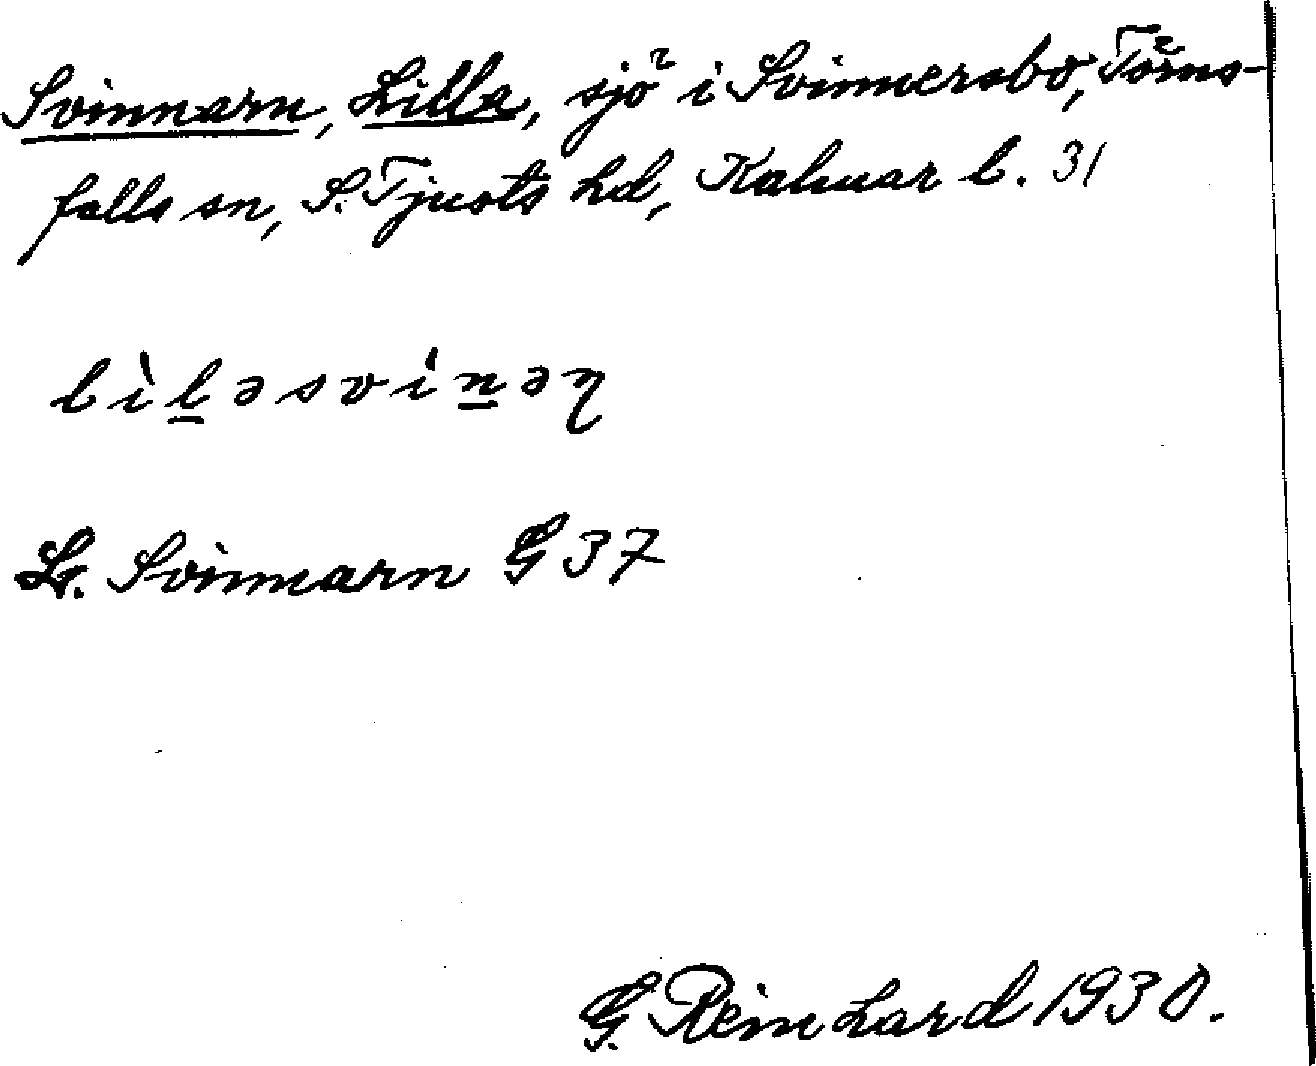 Svinnarn, Lilla, sjö i Svinnersbo, Törns-
falls sn, S. Tjusts hd, Kalmar l. 31
lìl̲əsvin̲əɳ
L. Svinnarn G 37
G. Reinhard 1930.